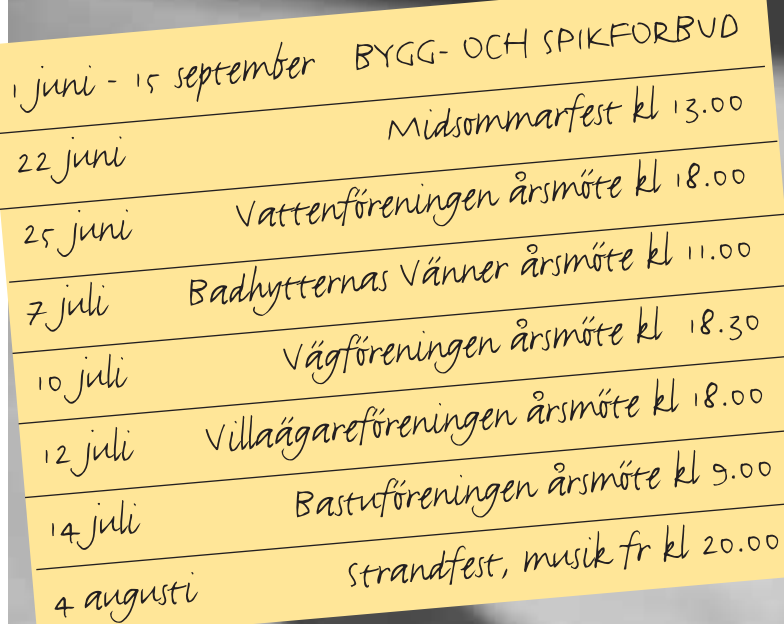 1 juni - 15 september BYGG- OCH SPIKFÖRBUD
22 juni Midsommarfest kl 13.00
25 juni Vattenföreningen årsmöte kl 18.00
7 juli Badhytternas Vänner årsmöte kl 11.00
10 juli Vägföreningen årsmöte kl 18.30
12 juli Villaägareföreningen årsmöte kl 18.00
14 juli Bastuföreningen årsmöte kl 9.00
4 augusti Strandfest, musik fr kl 20.00